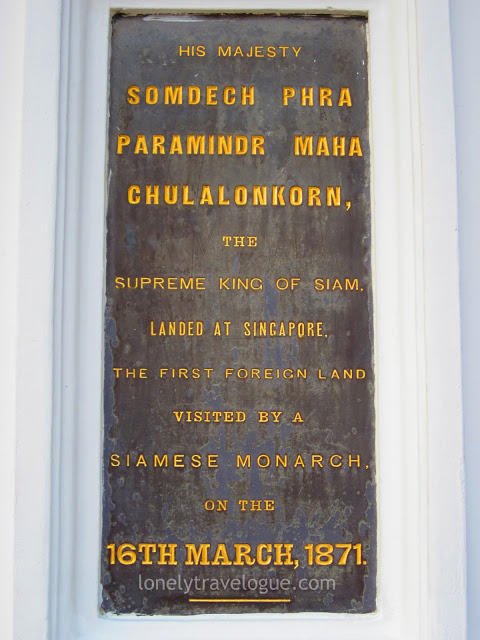 HIS MAJESTY
SOMDECH PHRA
PARAMINDR MAHA
CHULALONKORN,
THE
SUPREME KING OF SIAM,
LANDED AT SINGAPORE,
THE FIRST FOREIGN LAND
VISITED BY A
SIAMESE MONARCH,
ON THE
16TH MARCH, 1871.
lonelytravelogue.com